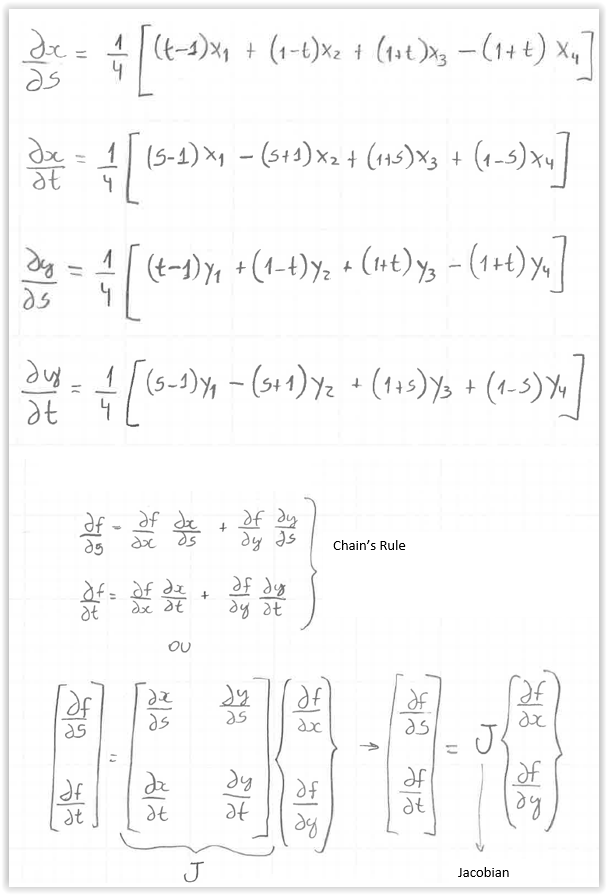 ∂x/∂s = 1/4 [(t-1)x₁ + (1-t)x₂ + (1+t)x₃ - (1+t) x₄]
∂x/∂t = 1/4 [(s-1)x₁ - (s+1)x₂ + (1+s)x₃ + (1-s)x₄]
∂y/∂s = 1/4 [(t-1)y₁ + (1-t)y₂ + (1+t)y₃ - (1+t)y₄]
∂y/∂t = 1/4 [(s-1)y₁ - (s+1)y₂ + (1+s)y₃ + (1-s)y₄]
∂f/∂s = ∂f/∂x ∂x/∂s + ∂f/∂y ∂y/∂s
Chain's Rule
∂f/∂t = ∂f/∂x ∂x/∂t + ∂f/∂y ∂y/∂t
ou
[∂f/∂s ; ∂f/∂t] = [∂x/∂s ∂y/∂s ; ∂x/∂t ∂y/∂t] {∂f/∂x ; ∂f/∂y} → [∂f/∂s ; ∂f/∂t] = J {∂f/∂x ; ∂f/∂y}
J
Jacobian